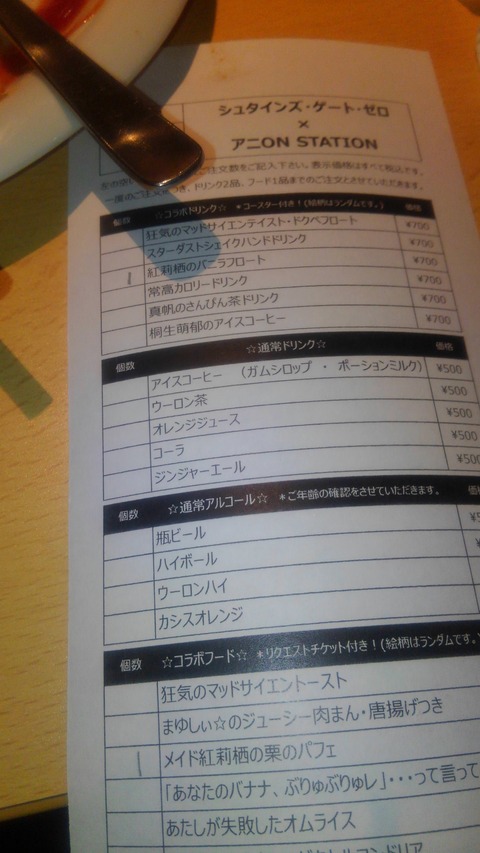 シュタインズ・ゲート・ゼロ
×
アニON STATION
ご注文数をご記入下さい。表示価格はすべて税込です。
一度のご注文につき、ドリンク2品、フード1品までのご注文とさせていただきます。
個数 ☆コラボドリンク☆ *コースター付き!(絵柄はランダムです。) 価格
狂気のマッドサイエンテイスト・ドクペフロート ¥700
スターダストシェイクハンドドリンク ¥700
| 紅莉栖のバニラフロート ¥700
常高カロリードリンク ¥700
真帆のさんぴん茶ドリンク ¥700
桐生萌郁のアイスコーヒー ¥700
個数 ☆通常ドリンク☆ 価格
アイスコーヒー (ガムシロップ ・ ポーションミルク) ¥500
ウーロン茶 ¥500
オレンジジュース ¥500
コーラ ¥500
ジンジャーエール ¥500
個数 ☆通常アルコール☆ *ご年齢の確認をさせていただきます。
瓶ビール
ハイボール
ウーロンハイ
カシスオレンジ
個数 ☆コラボフード☆ *リクエストチケット付き!(絵柄はランダムです。)
狂気のマッドサイエントースト
まゆしぃ☆のジューシー肉まん・唐揚げつき
| メイド紅莉栖の栗のパフェ
「あなたのバナナ、ぶりゅぶりゅレ」・・・って言って
あたしが失敗したオムライス